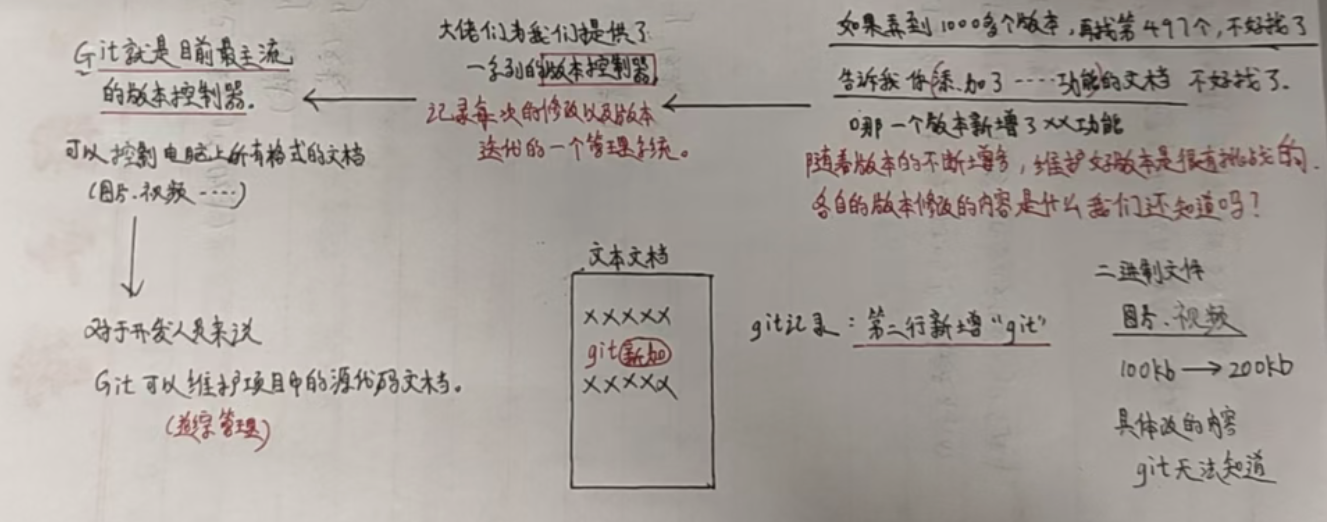 如果弄到1000多个版本，再找第497个，不好找了
告诉我你添加了·····功能的文档 不好找了.
哪一个版本新增了XX功能
随着版本的不断增多，维护好版本是很有挑战的.
各自的版本修改的内容是什么我们还知道吗？
大佬们为我们提供了
一系列的版本控制器
记录每次的修改以及版本
迭代的一个管理系统。
Git就是目前最主流
的版本控制器.
可以控制电脑上所有格式的文档
(图片.视频····)
对于开发人员来说
Git可以维护项目中的源代码文档。
(追踪管理)
文本文档
×××××
git新加
×××××
git记录：第二行新增“git”
二进制文件
图片.视频
100kb→200kb
具体改的内容
git无法知道